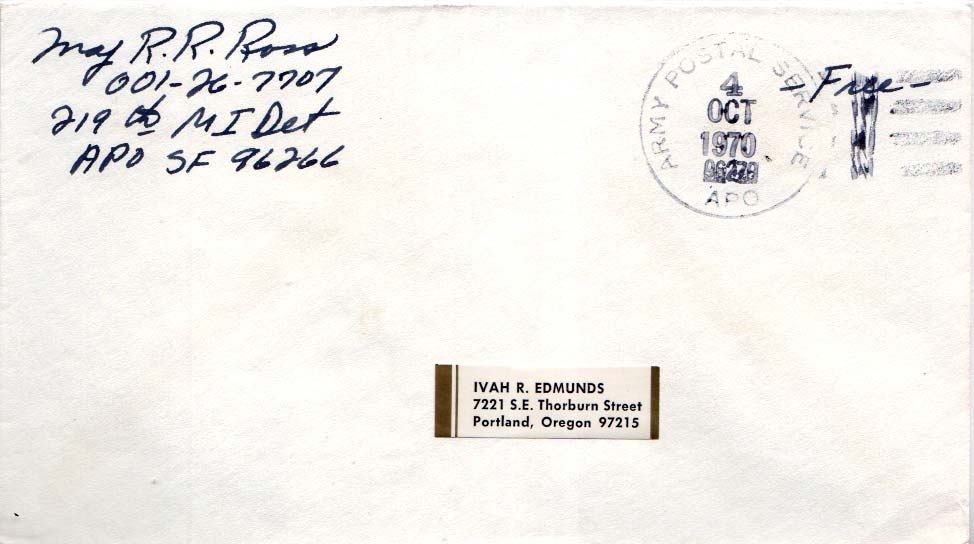 Maj R. R. Ross
001-26-7707
219 th MI Det
APO SF 96266
ARMY POSTAL SERVICE
4
OCT
1970
APO
- Free -
IVAH R. EDMUNDS
7221 S.E. Thorburn Street
Portland, Oregon 97215